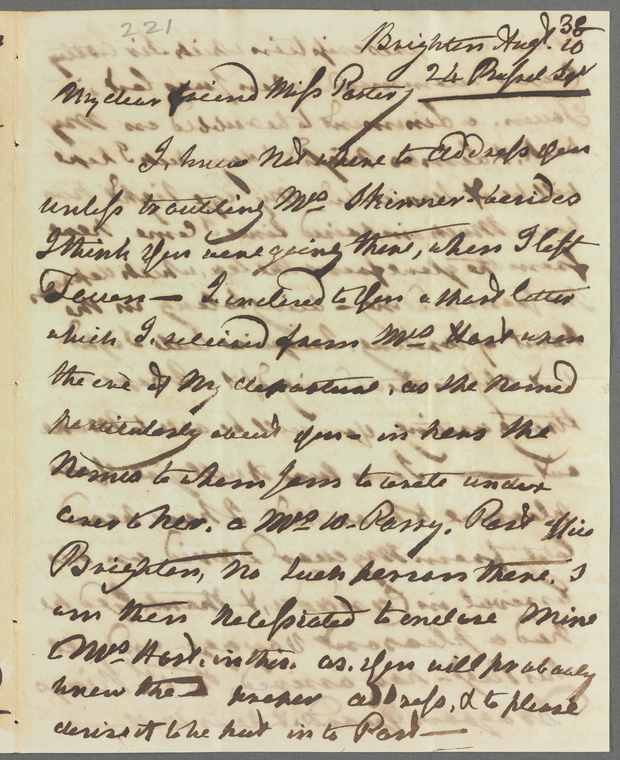 221
Brighton Augt. 38
10
24 Russel Sqr
My dear friend Miss Porter,
I, knew Not where to address you
unless troubling Mrs Skinner. besides
I think you were going there, when I left
Town — I enclosed to you a short letter
which I, received from Mrs Hart upon
the eve of My departure, as she named
particularly about you - in hers she
Names to whom I am to write under
cover to her. a Mrs W. Parry. Post Office
Brighton, No such person there. I
am then Necessitated to enclose Mine
to Mrs Hart. in this. as. you will probably
know the proper address, & to please
desire it to be put in to Post —